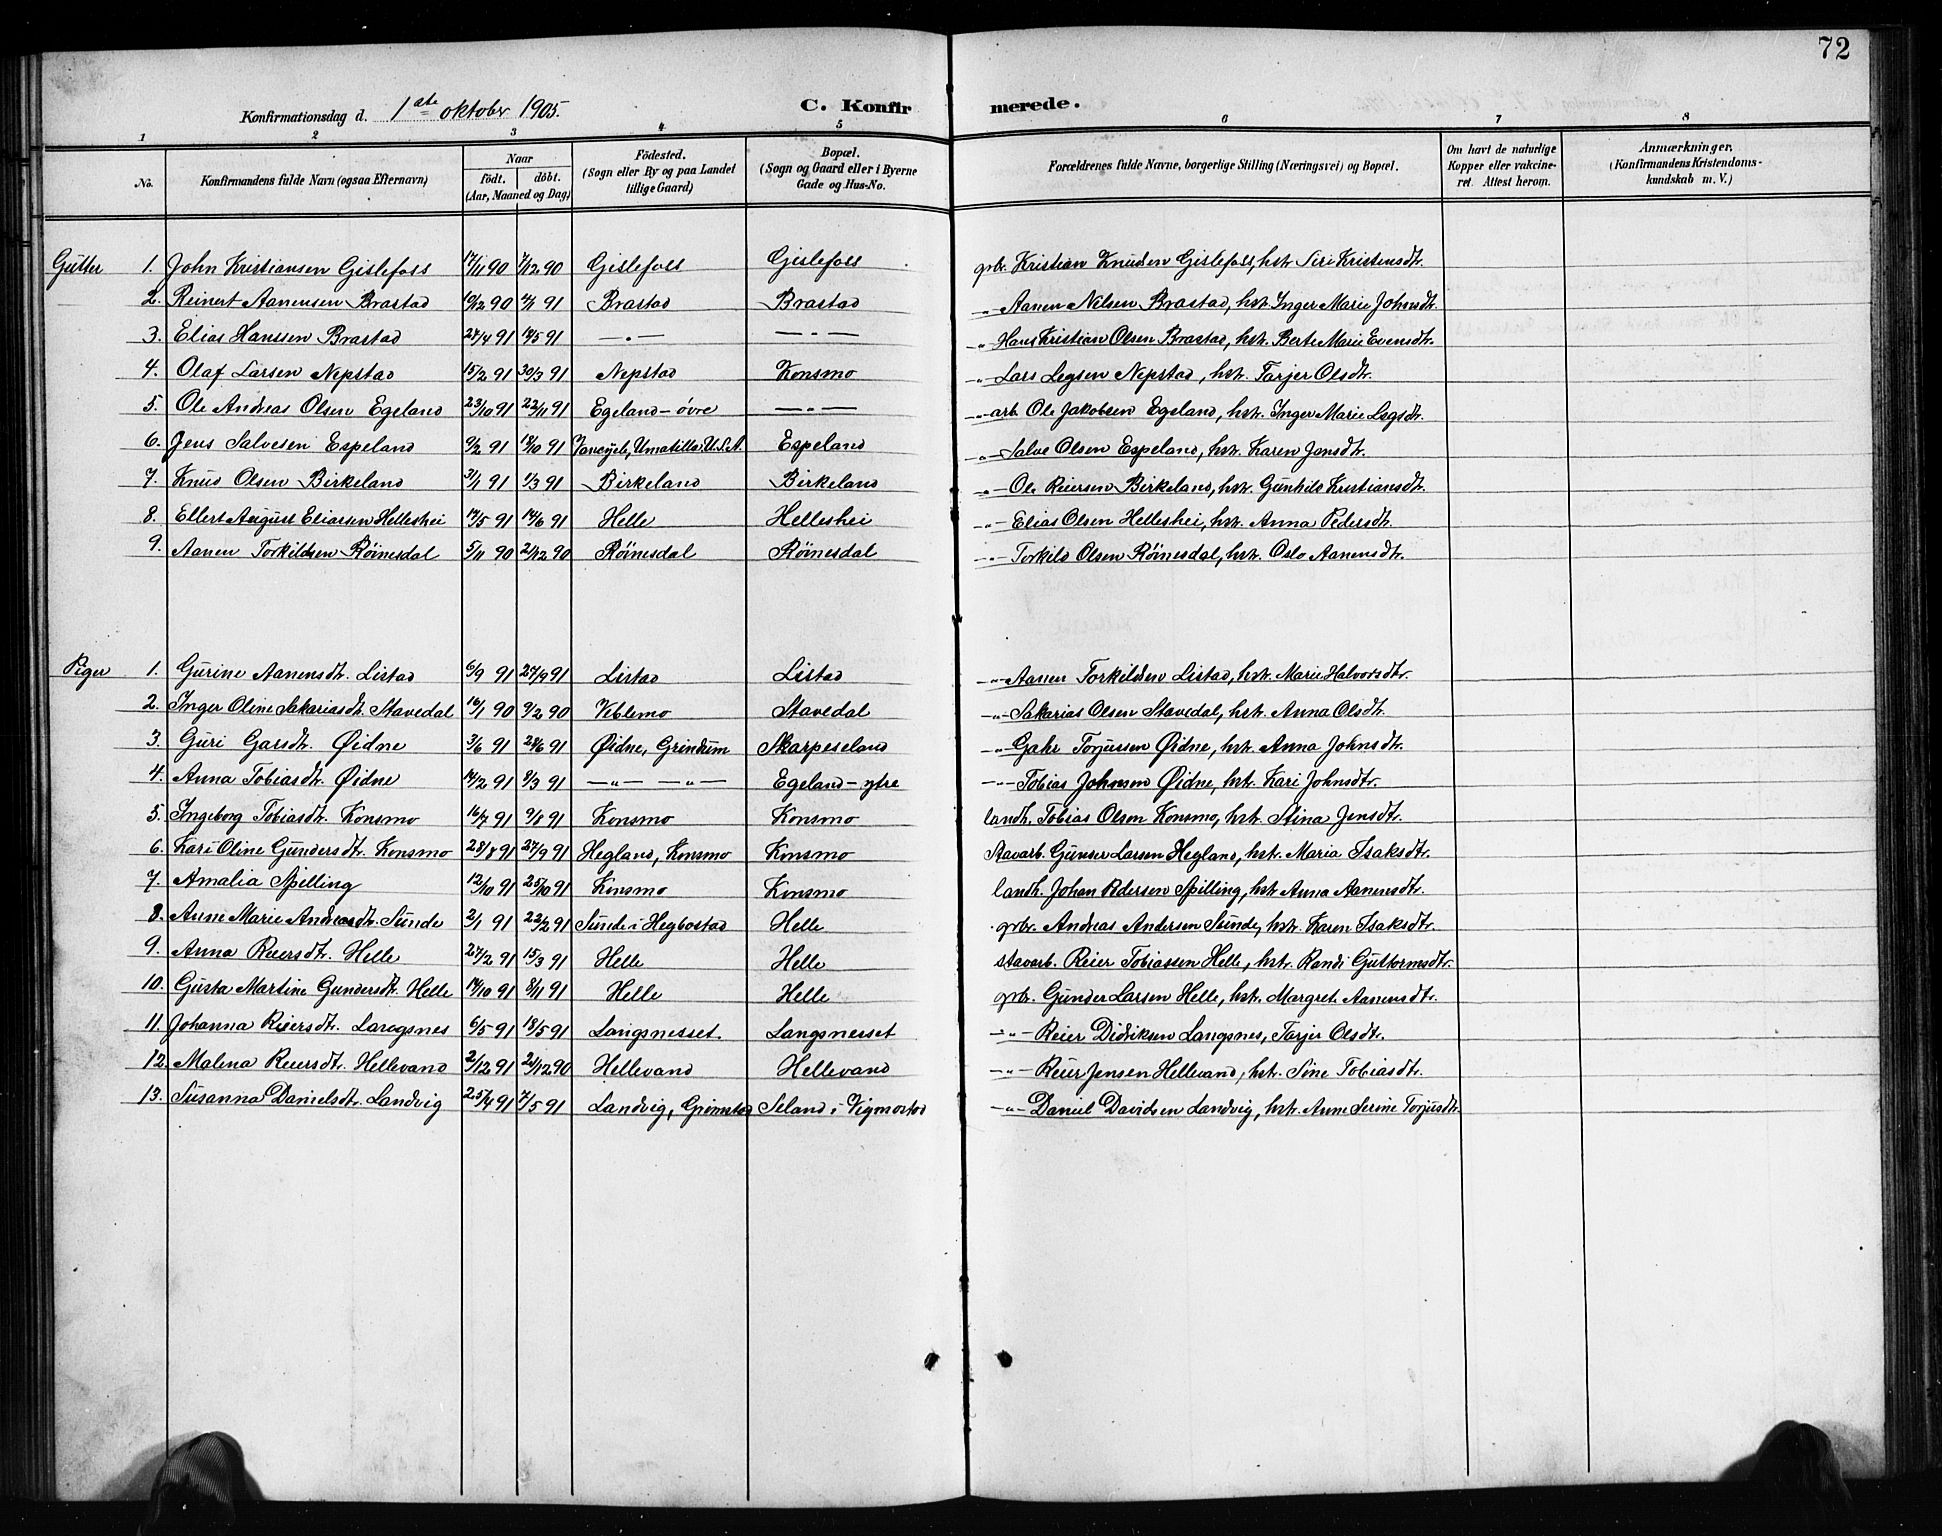 72
Konfirmationsdag d. 1ste oktober 1905. C. Konfirmerede.
1 2 3 4 5 6 7 8
No. Konfirmandens fulde Navn (ogsaa Efternavn) Naar födt. döbt. (Aar, Maaned og Dag) Födested. (Sogn eller By og paa Landet tillige Gaard) Bopæl. (Sogn og Gaard eller i Byerne Gade og Hus-No. Forældrenes fulde Navne, borgerlige Stilling (Næringsvei) og Bopæl. Om havt de naturlige Kopper eller vakcineret. Attest herom. Anmærkninger. (Konfirmandens Kristendomskundskab m. V.)
Gutter 1. John Kristiansen Gislefoss 17/11 90 7/12 90 Gislefoss Gislefoss gbr. Kristian Knudsen Gislefoss, hst. Siri Kristensdtr.
2. Reinert Aanensen Brastad 10/2 90 4/1 91 Brastad Brastad -"- Aanen Nilsen Brastad, hst. Inger Marie Johnsdtr.
3. Elias Hanssen Brastad 27/4 91 18/5 91 -"- -"- -"- Hans Kristian Olsen Brastad, hst. Berte Marie Evensdtr.
4. Olaf Larsen Nepstad 15/2 91 30/3 91 Nepstad Konsmo -"- Lars Legsen Nepstad, hst. Tarjer Olsdtr.
5. Ole Andreas Olsen Egeland 23/10 91 22/11 91 Egeland - övre -"- -"- arb. Ole Jakobsen Egeland, hst. Inger Marie Legsdtr.
6. Jens Salvesen Espeland 9/2 91 18/10 91 Umatilla U.S.A. Espeland -"- Salve Olsen Espeland, hst. Karen Jensdtr.
7. Knud Olsen Birkeland 31/1 91 1/3 91 Birkeland Birkeland -"- Ole Reiersen Birkeland, hst. Gunhild Kristiansdtr.
8. Ellert August Eliassen Helleshei 17/5 91 14/6 91 Helle Helleshei -"- Elias Olsen Helleshei, hst. Anna Pedersdtr.
9. Aanen Torkildsen Röinesdal 5/11 90 2/12 90 Röinesdal Röinesdal -"- Torkild Olsen Röinesdal, hst. Oslo Aanensdtr.
Piger 1. Gurine Aanensdtr. Listad 6/9 91 27/9 91 Listad Listad -"- Aanen Torkildsen Listad, hst. Marie Halvorsdtr.
2. Inger Oline Sakariasdtr. Stavedal 16/1 90 9/2 90 Vblemo Stavedal -"- Sakarias Olsen Stavedal, hst. Anna Olsdtr.
3. Guri Garsdtr. Øidne 3/6 91 24/6 91 Øidne, Grindum Skarpeseland -"- Gahr Torjussen Øidne, hst. Anna Johnsdtr.
4. Anna Tobiasdtr. Øidne 14/2 91 8/3 91 -"- -"- Egeland - ytre -"- Tobias Johnsen Øidne, hst. Kari Johnsdtr.
5. Ingeborg Tobiasdtr. Konsmo 16/7 91 9/8 91 Konsmo Konsmo landh. Tobias Olson Konsmo, hst. Stina Jensdtr.
6. Kari Oline Gundersdtr. Konsmo 28/8 91 27/9 91 Hegland, Konsmo Konsmo Stavarb. Gunder Larsen Hegland, hst. Maria Isaksdtr.
7. Amalia Spilling 12/10 91 25/10 91 Konsmo Konsmo landh. Johan Pedersen Spilling, hst. Anna Aanensdtr.
8. Anne Marie Andreasdtr. Sunde 2/1 91 22/2 91 Sunde i Hegbostad Helle gbr. Andreas Andersen Sunde, hst. Karen Isaksdtr.
9. Anna Reiersdtr. Helle 27/2 91 15/3 91 Helle Helle stavarb. Reier Tobiassen Helle, hst. Randi Guttormsdtr.
10. Gusta Martine Gundersdtr. Helle 14/10 91 8/11 91 Helle Helle gbr. Gunder Larsen Helle, hst. Margret Aanensdtr.
11. Johanna Reiersdtr. Langsnes 6/5 91 18/5 91 Langsnesset Langsnesset -"- Reier Didriksen Langsnes, Tarjer Olsdtr.
12. Malena Reiersdtr. Hellevand 2/12 91 21/12 90 Hellevand Hellevand -"- Reier Jensen Hellevand, hst. Sine Tobiasdtr.
13. Susanna Danielsdtr. Landvig 25/4 91 7/5 91 Landvig, Grimstad Seland i Vigmostad -"- Daniel Davidsen Landvig, hst. Anne Serine Torjusdtr.